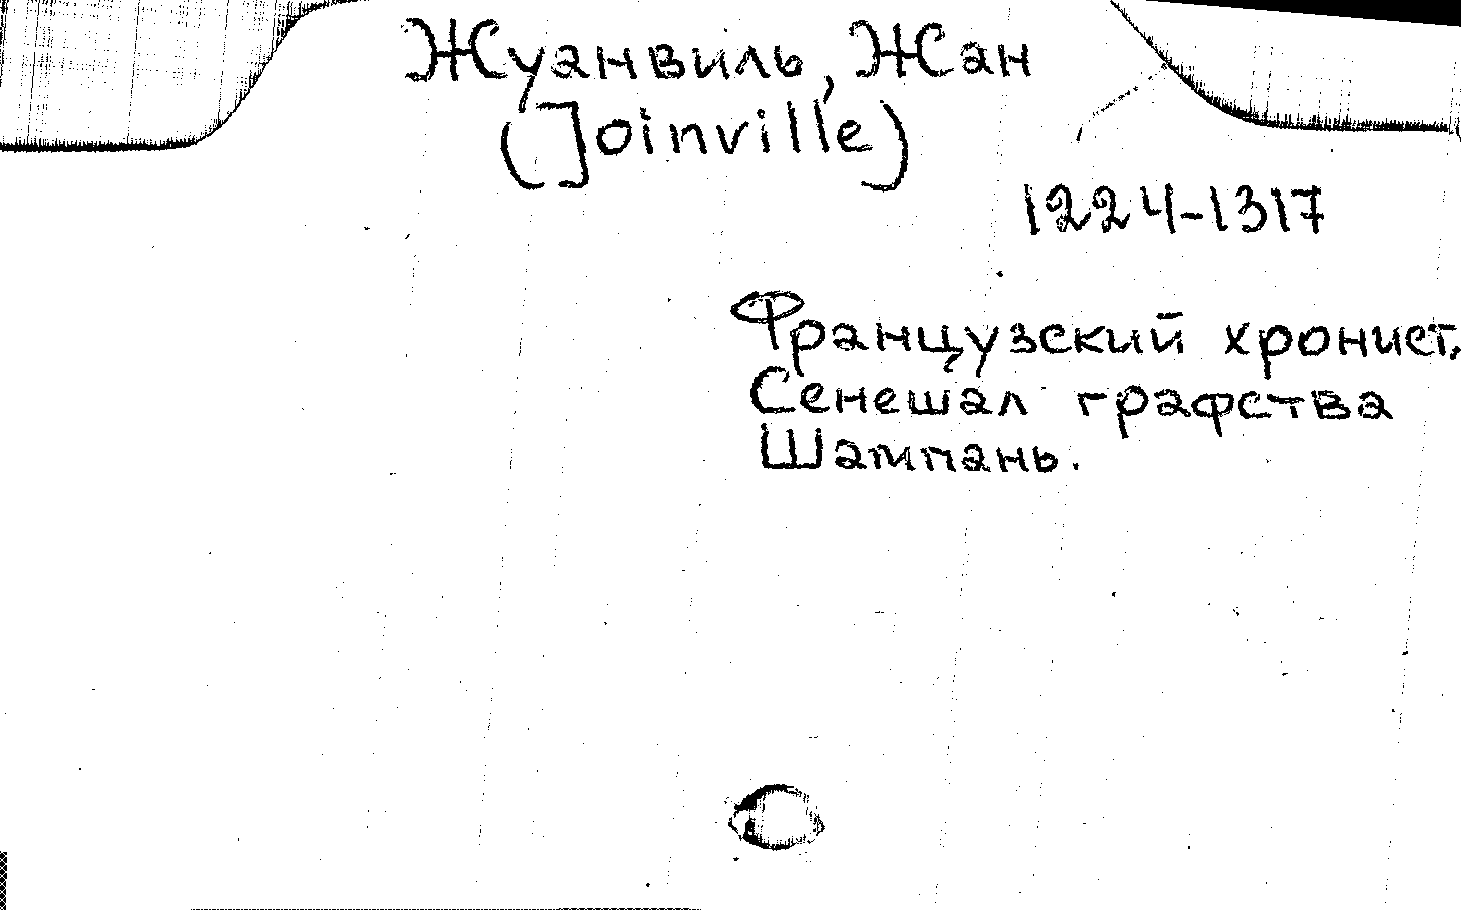 Жуанвиль, Жан
(Joinville)
1224-1317
Французский хронист.
Сенешал графства
Шампань.